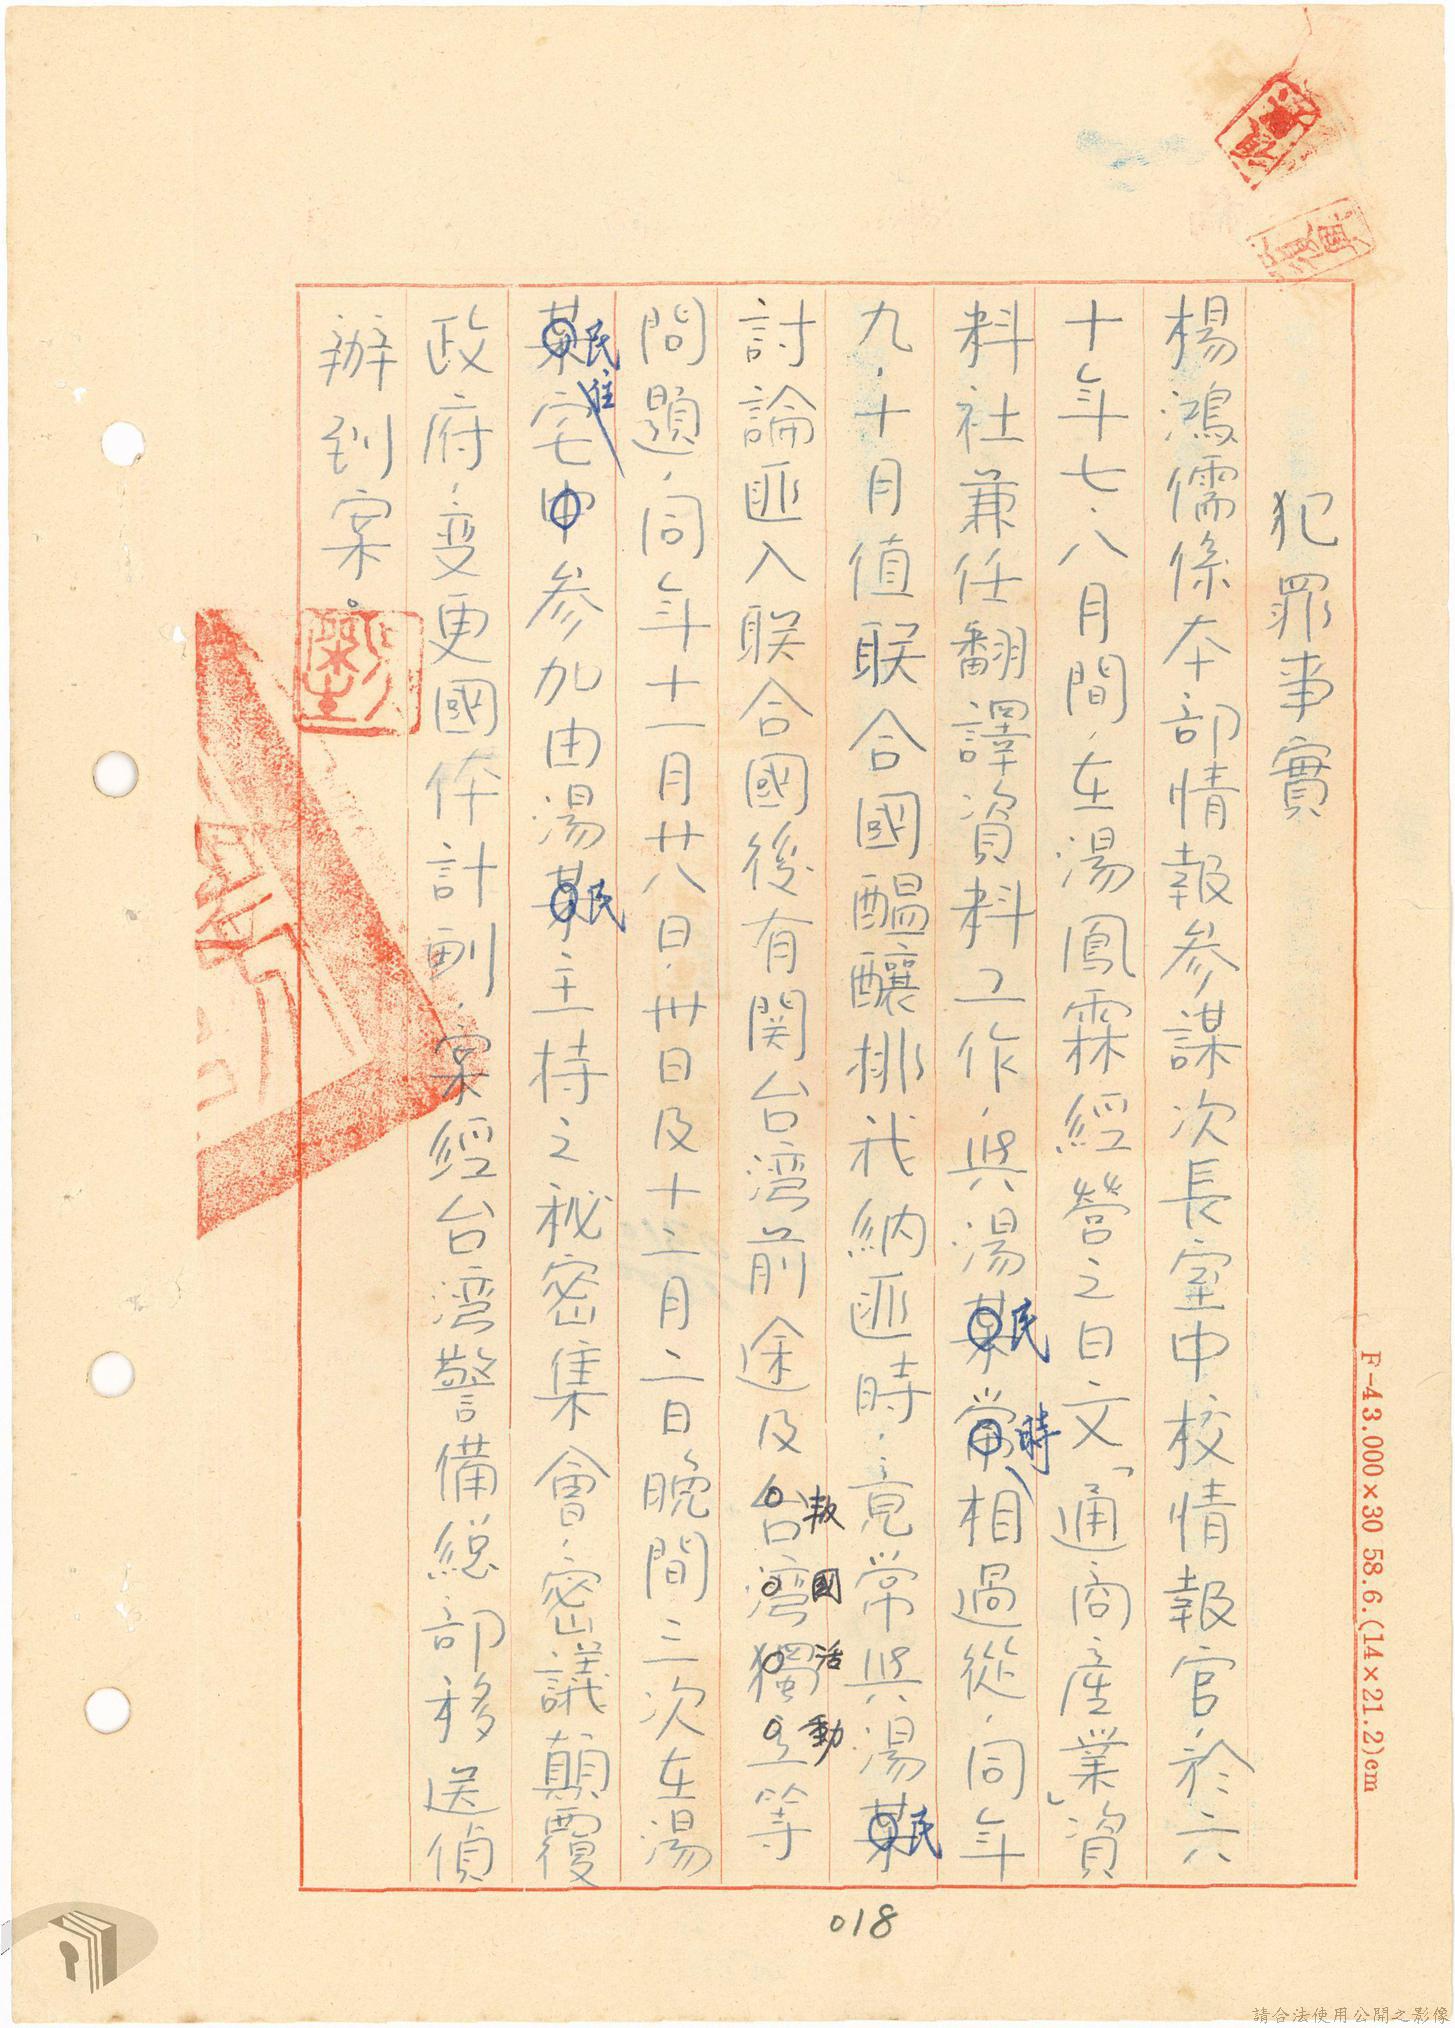 犯罪事實
楊鴻儒係本部情報參謀次長室中校情報官，於六
十年七、八月間，在湯鳳霖經營之日文「通商產業」資
料社兼任翻譯資料工作，與湯某民常時相過從，同年
九、十月值联合國醞釀排我納匪時，竟常與湯某民
討論匪入联合國後有関台湾前途及台湾獨立叛國活動等
問題，同年十一月廿八日、卅日及十二月二日晚間三次在湯
某民住宅中參加由湯某民主持之秘密集會，密議顛覆
政府，变更國体計劃，案經台湾警備總部移送偵
辦到案。
F-43.000×30 58.6.(14×21.2)cm
018
請合法使用公開之影像